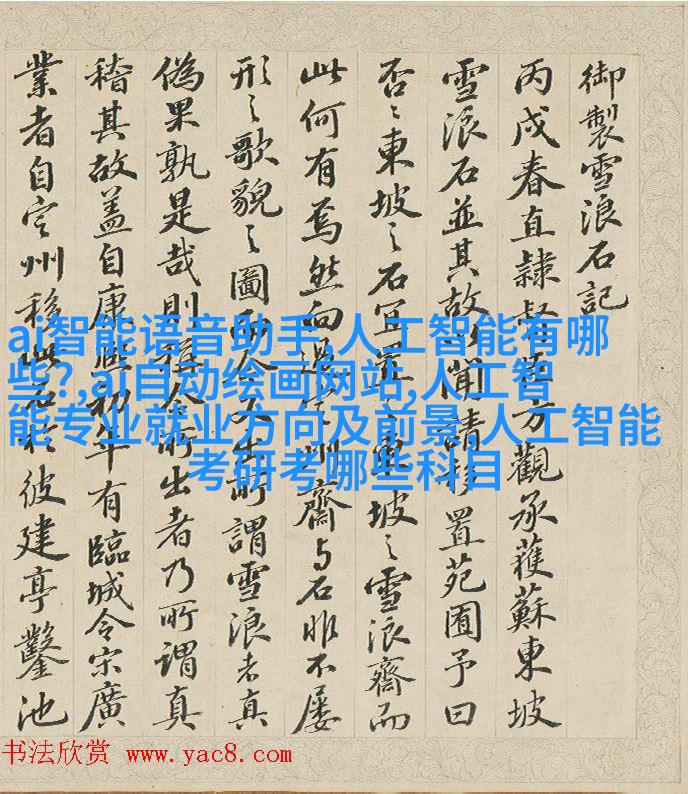 御製雪浪石記
丙戌春直隸督臣方觀承獲蘇東坡
雪浪石並其故以聞請移置苑囿予曰
否〻東坡之石宜置之東坡之雪浪齋而
此何有焉然向過定州齋与石非不屢
形之歌貌之圖而今又出所謂雪浪者真
偽果孰是哉則今所出者乃所謂真
稽其故盖自康熙初年有臨城令宋廣
業者自定州移此石於彼建亭鑿池
ai智能语音助手,人工智能有哪
些?,ai自动绘画网站,人工智
能专业就业方向及前景,人工智能
考研考哪些科目
书法欣赏 www.yac8.com